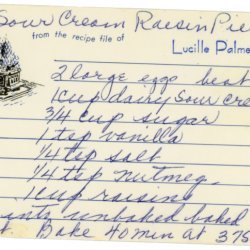 Sour Cream Raisin Pie
from the recipe file of
Lucille Palme
2 large eggs beat
1 cup dairy sour cre
3/4 cup sugar
1 tsp vanilla
1/4 tsp salt
1/4 tsp nutmeg
1 cup raisins
into unbaked baked
Bake 40 min at 375